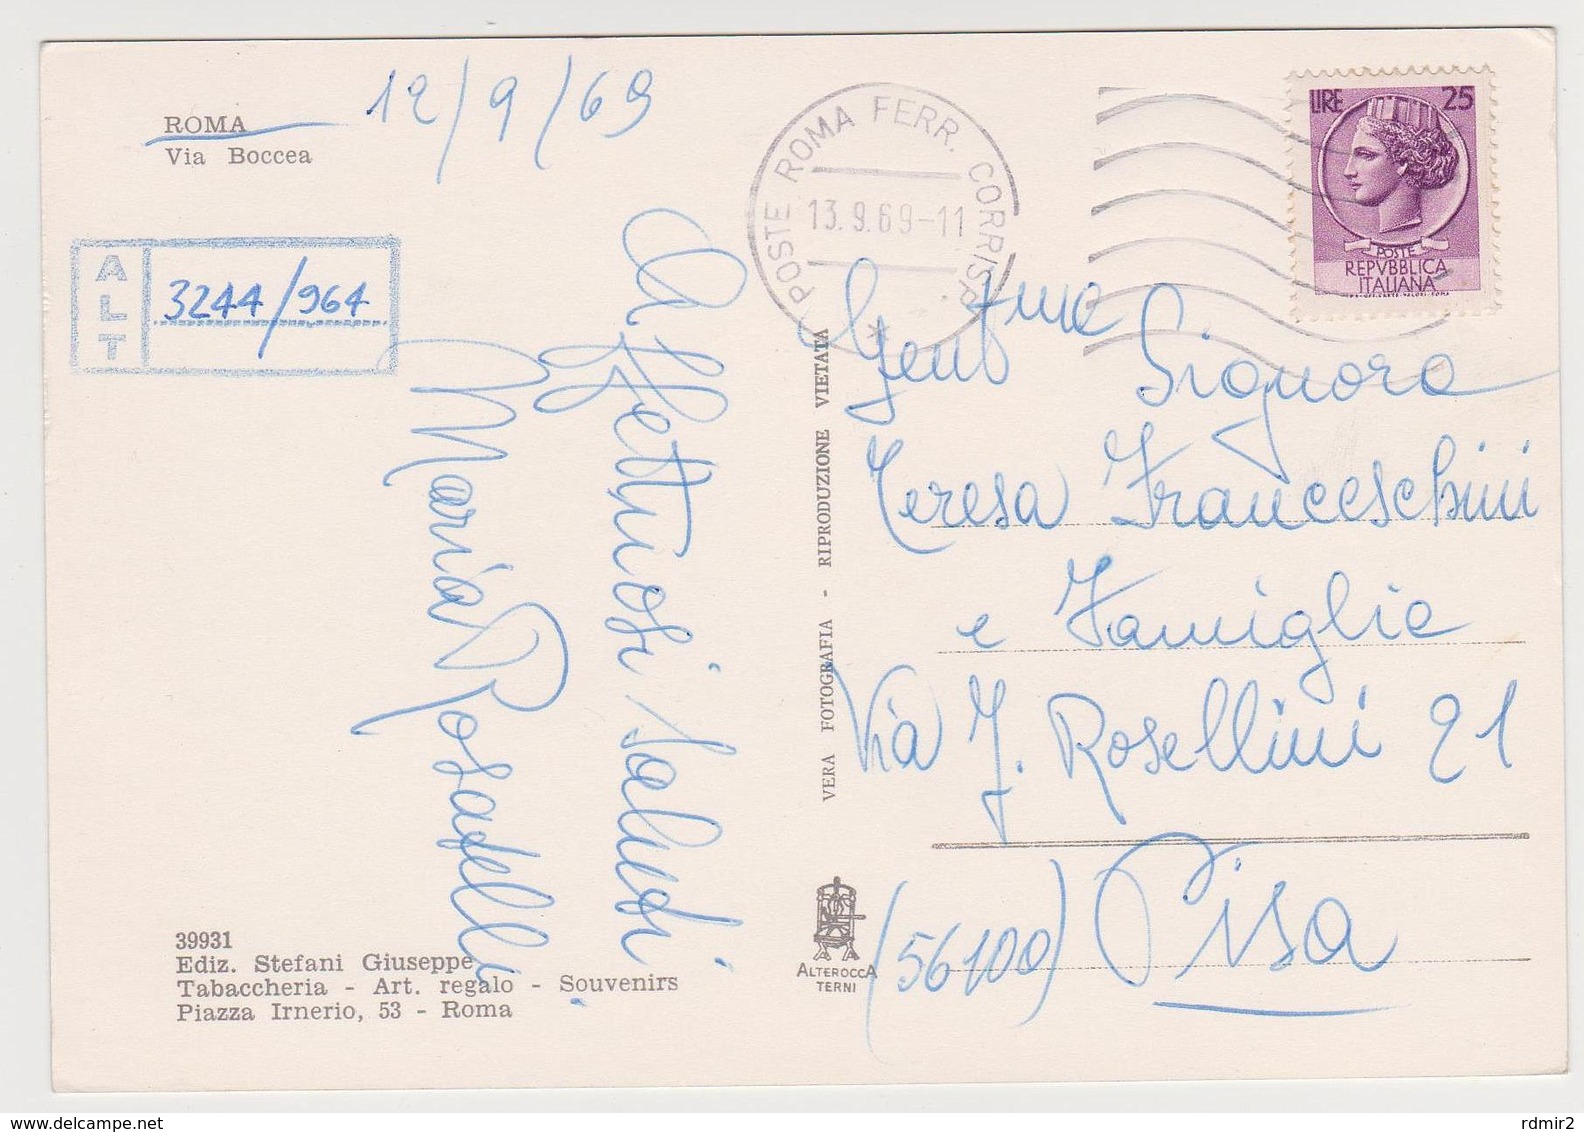 ROMA
Via Boccea
12/9/69
ALT
3244/964
Affettuosi saluti
Maria Rosatelli
39931
Ediz. Stefani Giuseppe
Tabaccheria - Art. regalo - Souvenirs
Piazza Irnerio, 53 - Roma
VERA FOTOGRAFIA - RIPRODUZIONE VIETATA
ALTEROCCA
TERNI
POSTE ROMA FERR. CORRISP.
13.9.69-11
LIRE 25
POSTE
REPVBBLICA
ITALIANA
Gent.ma Signora
Teresa Franceschini
e Famiglia
Via J. Rosellini 21
(56100) Pisa
www.delcampe.net
rdmir2